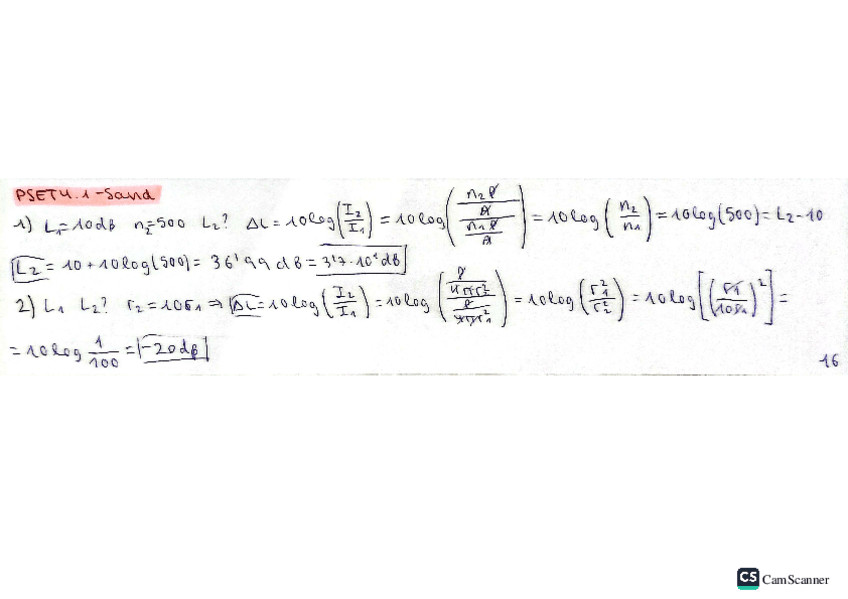 PSET4.1-Sound
1) L₁=10dB n₂=500 L₂? ΔL=10log(I₂/I₁) = 10log((n₂P/A)/(n₁P/A)) = 10log(n₂/n₁) = 10log(500) = L₂-10
L₂ = 10+10log(500) = 36'99 dB = 3'7·10¹dB
2) L₁ L₂? r₂=10r₁ ⇒ ΔL=10log(I₂/I₁) = 10log((P/4πr₂²)/(P/4πr₁²)) = 10log(r₁²/r₂²) = 10log[(r₁/10r₁)²] =
= 10log 1/100 = -20dB
16
CS CamScanner